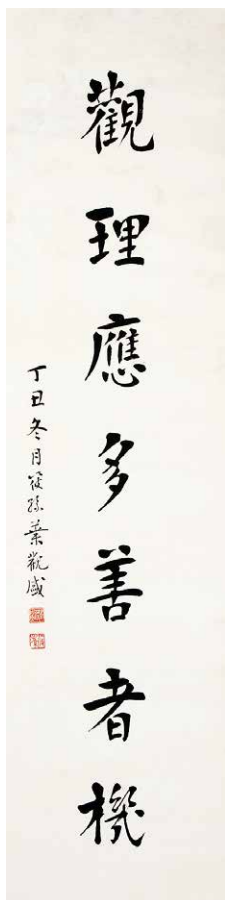 觀理應多善者機
丁丑冬月筱孫葉觀盛